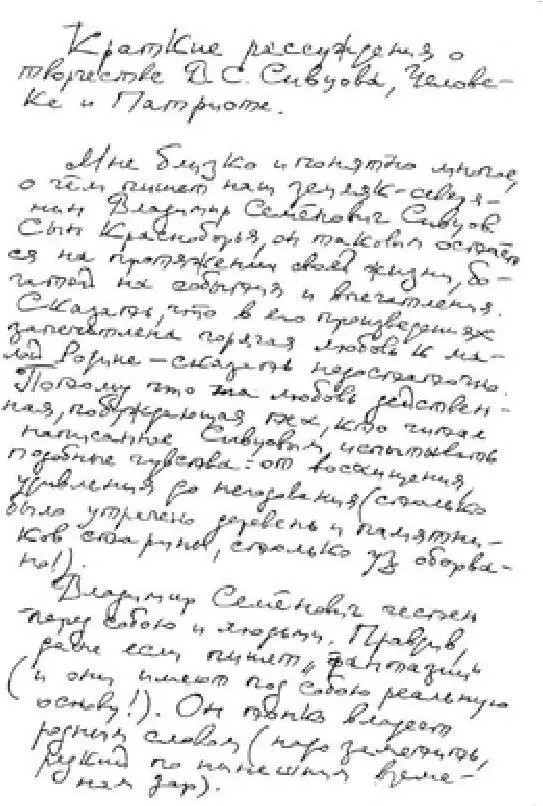 Краткие рассуждения о
творчестве В. С. Сивцова, Челове-
ке и Патриоте.
Мне близко и понятно многое,
о чём пишет наш земляк-северя-
нин Владимир Семёнович Сивцов
Сын Красноборья, он таковым остаёт
ся на протяжении своей жизни, бо-
гатой на события и впечатления.
Сказать, что в его произведениях
запечатлена горячая любовь к ма-
лой Родине – сказать недостаточно.
Потому что та любовь действен-
ная, побуждающая тех, кто читал
написанное Сивцовым, испытывать
подобные чувства: от восхищения,
удивления до негодования (столько
было утрачено деревень и памятни-
ков старины, столько уз оборва-
но!).
Владимир Семёнович честен
перед собою и людьми. Правдив,
даже если пишет „фантазии
(и они имеют под собою реальную
основу!). Он тонко владеет
родным словом (надо заметить,
редкий по нынешним време-
нам дар).